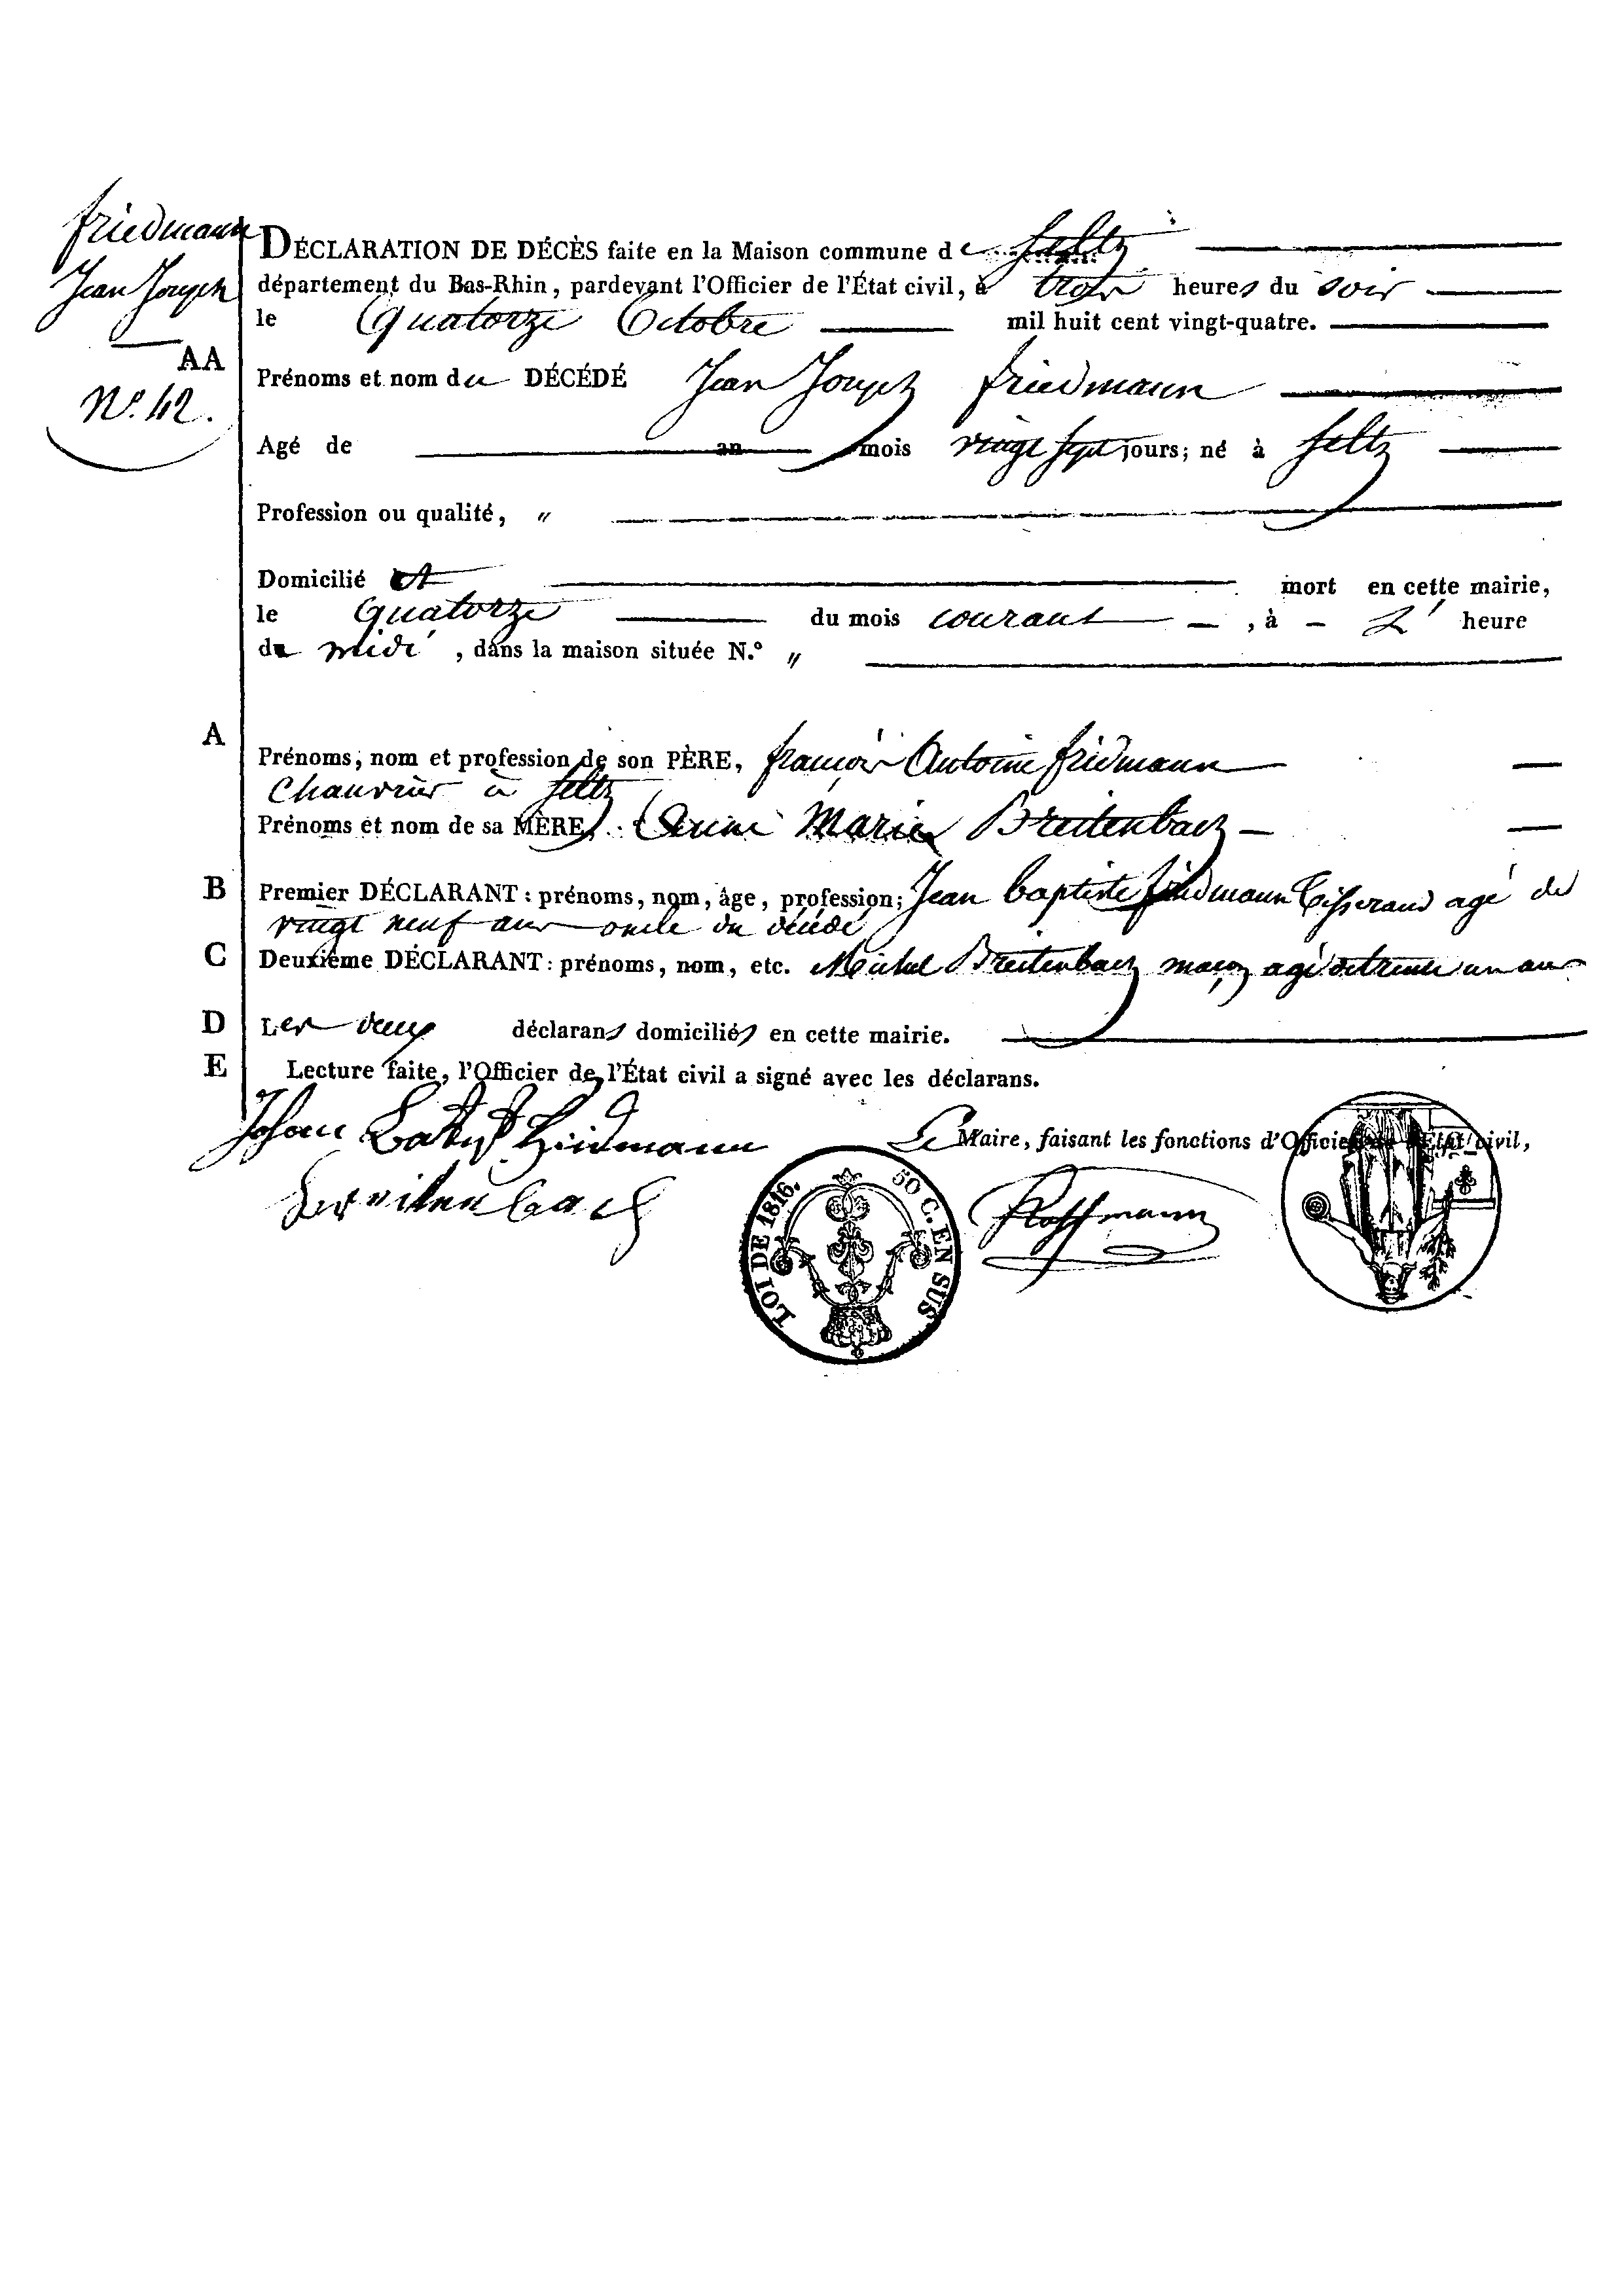 friedmann
Jean Joseph
AA
N.º 42.
DÉCLARATION DE DÉCÈS faite en la Maison commune de Seltz
département du Bas-Rhin, pardevant l'Officier de l'État civil, à trois heures du soir
le Quatorze Octobre mil huit cent vingt-quatre.
Prénoms et nom du DÉCÉDÉ Jean Joseph friedmann
Agé de an mois vingt sept jours; né à Seltz
Profession ou qualité, "
Domicilié mort en cette mairie,
le quatorze du mois courant, à heure
de midi, dans la maison située N.º "
A
Prénoms, nom et profession de son PÈRE, françois Antoine fridmann
Chanvrier à Seltz
Prénoms et nom de sa MÈRE, Anne Marie Breitenbach
B Premier DÉCLARANT : prénoms, nom, âge, profession; Jean baptiste fridmann Tisserand agé de
vingt neuf ans oncle du décédé
C Deuxième DÉCLARANT : prénoms, nom, etc. Michel Breitenbach maçon agé de trente un ans
D Les deux déclarans domiciliés en cette mairie.
E Lecture faite, l'Officier de l'État civil a signé avec les déclarans.
Johan Batist Fridmann
Le Maire, faisant les fonctions d'Officier de l'État civil,
Breitenbach
Hoffmann
LOI DE 1816.
50 C. EN SUS